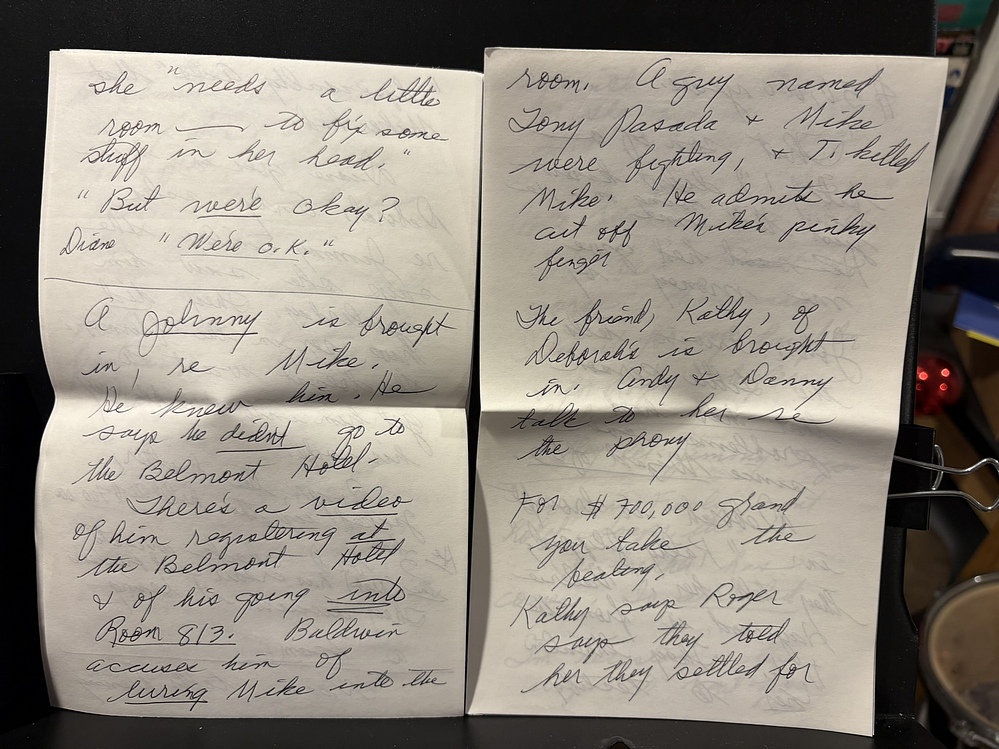 she "needs a little
room — to fix some
stuff in her head."
"But we're okay?
Diane "We're O.K."
A Johnny is brought
in, re Mike.
He knew him. He
says he didn't go to
the Belmont Hotel.
There's a video
of him registering at
the Belmont Hotel
& of his going into
Room 813. Baldwin
accuses him of
luring Mike into the
room. A guy named
Tony Pasada + Mike
were fighting, + T. killed
Mike. He admits he
cut off Mike's pinky
finger
The friend, Kathy, of
Deborah's is brought
in. Andy + Danny
talk to her re
the proxy
For $700,000 grand
you take the
beating.
Kathy says Roger
says they told
her they settled for